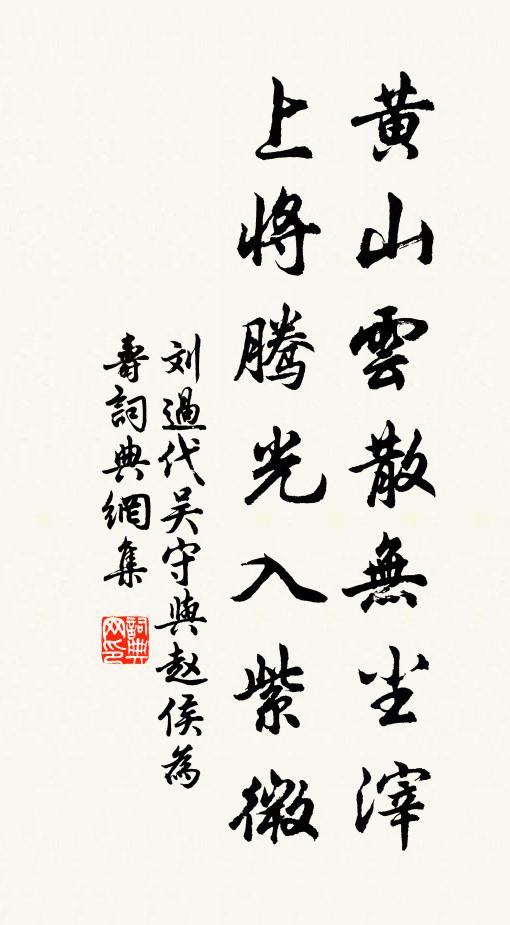 黄山雲散無尘滓
上将腾光入紫微
刘過代吴守與赵侯為
壽詞典網集
詞典网印